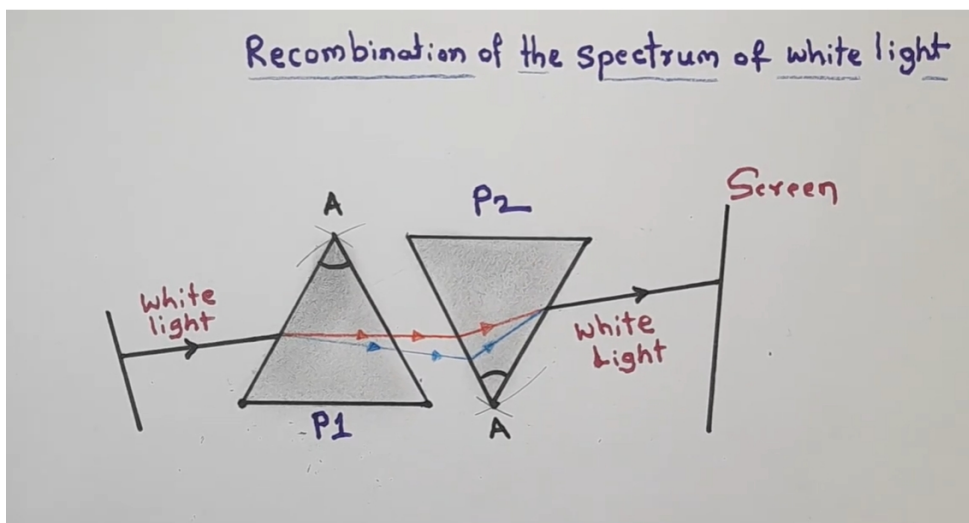 Recombination of the spectrum of white light
Screen
A
P2
white
light
white
Light
P1
A